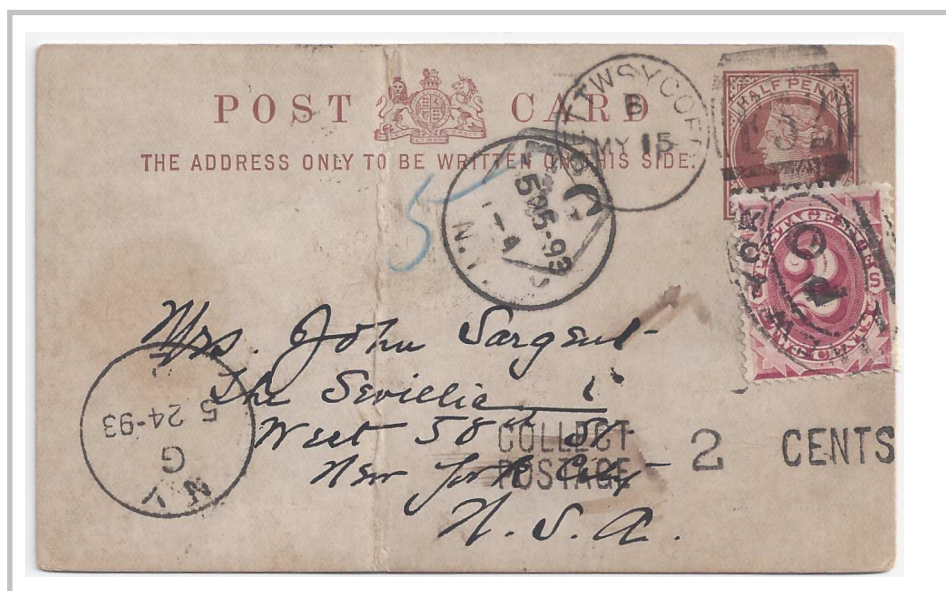 POST CARD
THE ADDRESS ONLY TO BE WRITTEN ON THIS SIDE.
HALF PENNY
BETTWSYCOED
B
MY 15
5
G
5 25-93
N.Y.
2
CENTS
Mrs. John Sargent
The Sevillia
West 58th St
New York City
U.S.A.
COLLECT
POSTAGE 2 CENTS
N.Y.
G
5 24-93